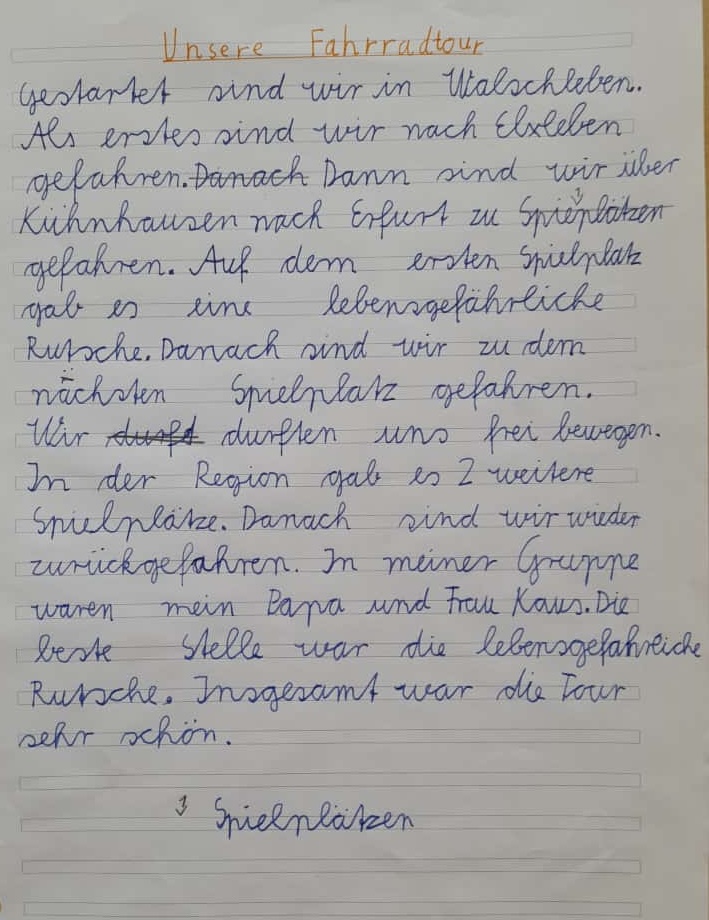 Unsere Fahrradtour
Gestartet sind wir in Walschleben.
Als erstes sind wir nach Elxleben
gefahren. Danach Dann sind wir über
Kühnhausen nach Erfurt zu Spieplätzen 1
gefahren. Auf dem ersten Spielplatz
gab es eine lebensgefährliche
Rutsche. Danach sind wir zu dem
nächsten Spielplatz gefahren.
Wir durft durften uns frei bewegen.
In der Region gab es 2 weitere
Spielplätze. Danach sind wir wieder
zurückgefahren. In meiner Gruppe
waren mein Papa und Frau Kaus. Die
beste Stelle war die lebensgefahrleiche
Rutsche. Insgesamt war die Tour
sehr schön.
1 Spielplätzen